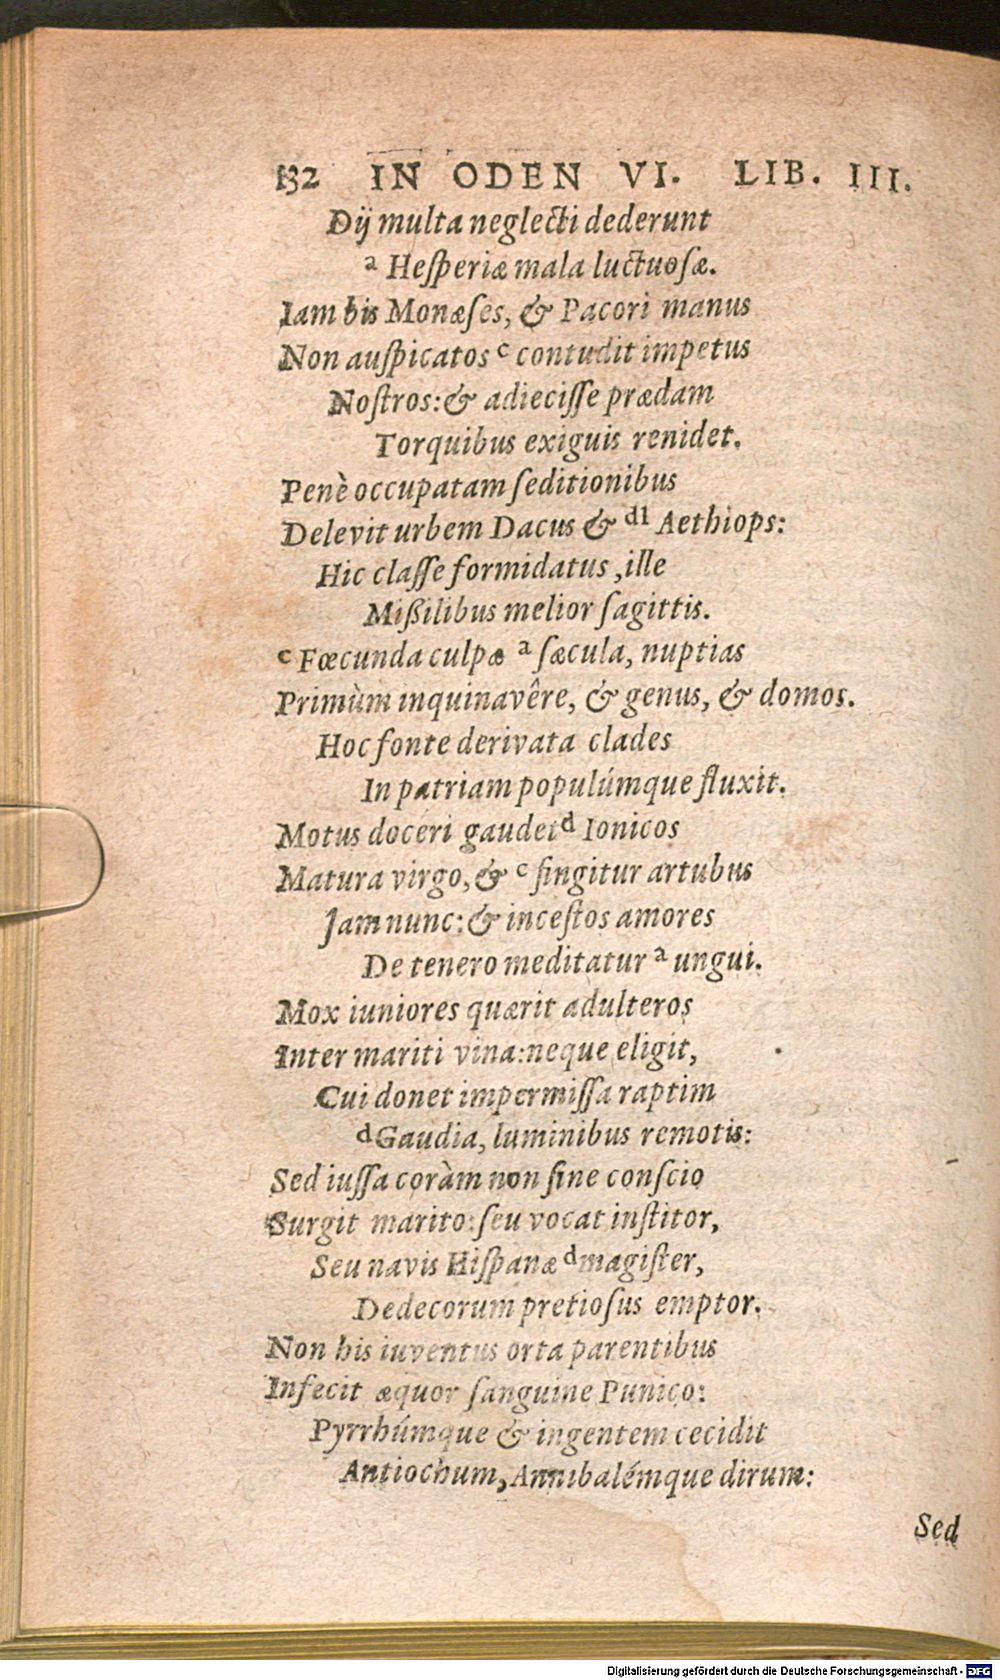 132 IN ODEN VI. LIB. III.
Dij multa neglecti dederunt
a Heſperiæ mala luctuoſæ.
Iam bis Monæſes, & Pacori manus
Non auſpicatos c contudit impetus
Noſtros: & adieciſſe prædam
Torquibus exiguis renidet.
Penè occupatam ſeditionibus
Delevit urbem Dacus & dl Aethiops:
Hic claſſe formidatus, ille
Mißilibus melior ſagittis.
c Fœcunda culpæ a ſæcula, nuptias
Primùm inquinavêre, & genus, & domos.
Hoc fonte derivata clades
In patriam populúmque fluxit.
Motus doceri gaudet d Ionicos
Matura virgo, & c fingitur artubus
Jam nunc: & inceſtos amores
De tenero meditatur a ungui.
Mox iuniores quærit adulteros
Inter mariti vina: neque eligit,
Cui donet impermiſſa raptim
d Gaudia, luminibus remotis:
Sed iuſſa coràm non ſine conſcio
Surgit marito: ſeu vocat inſtitor,
Seu navis Hiſpanæ d magiſter,
Dedecorum pretioſus emptor.
Non his iuventus orta parentibus
Infecit æquor ſanguine Punico:
Pyrrhúmque & ingentem cecidit
Antiochum, Annibalémque dirum:
Sed
Digitalisierung gefördert durch die Deutsche Forschungsgemeinschaft - DFG